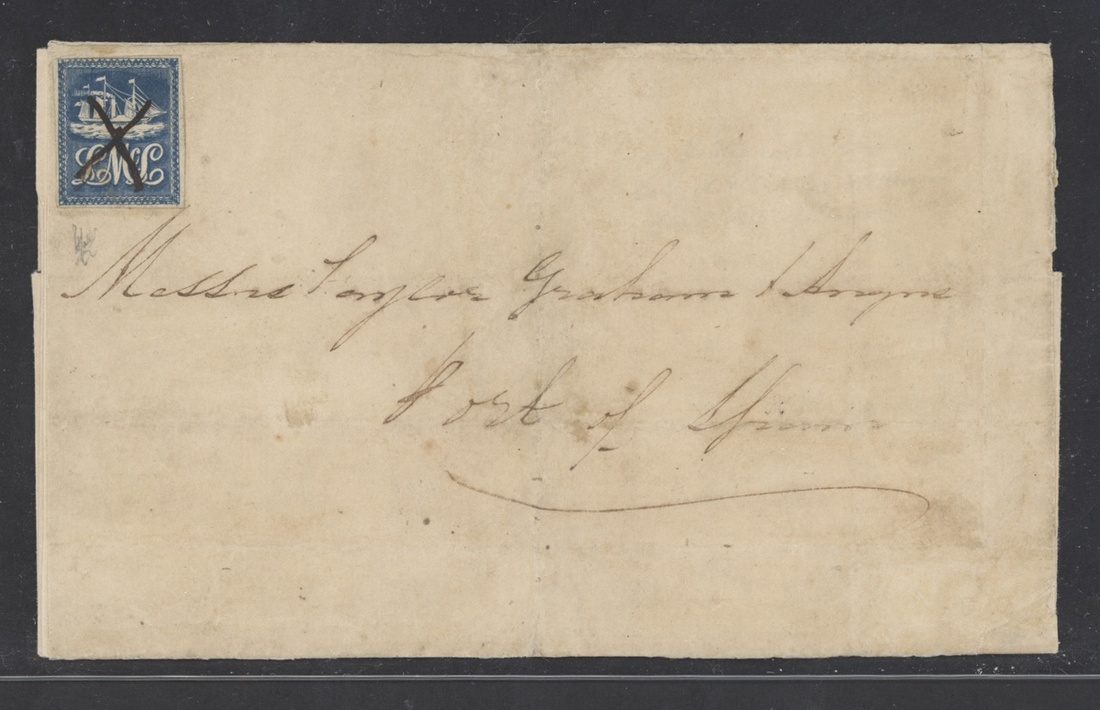 L Mc L
Messrs Taylor Graham & Angus
Port of Spain